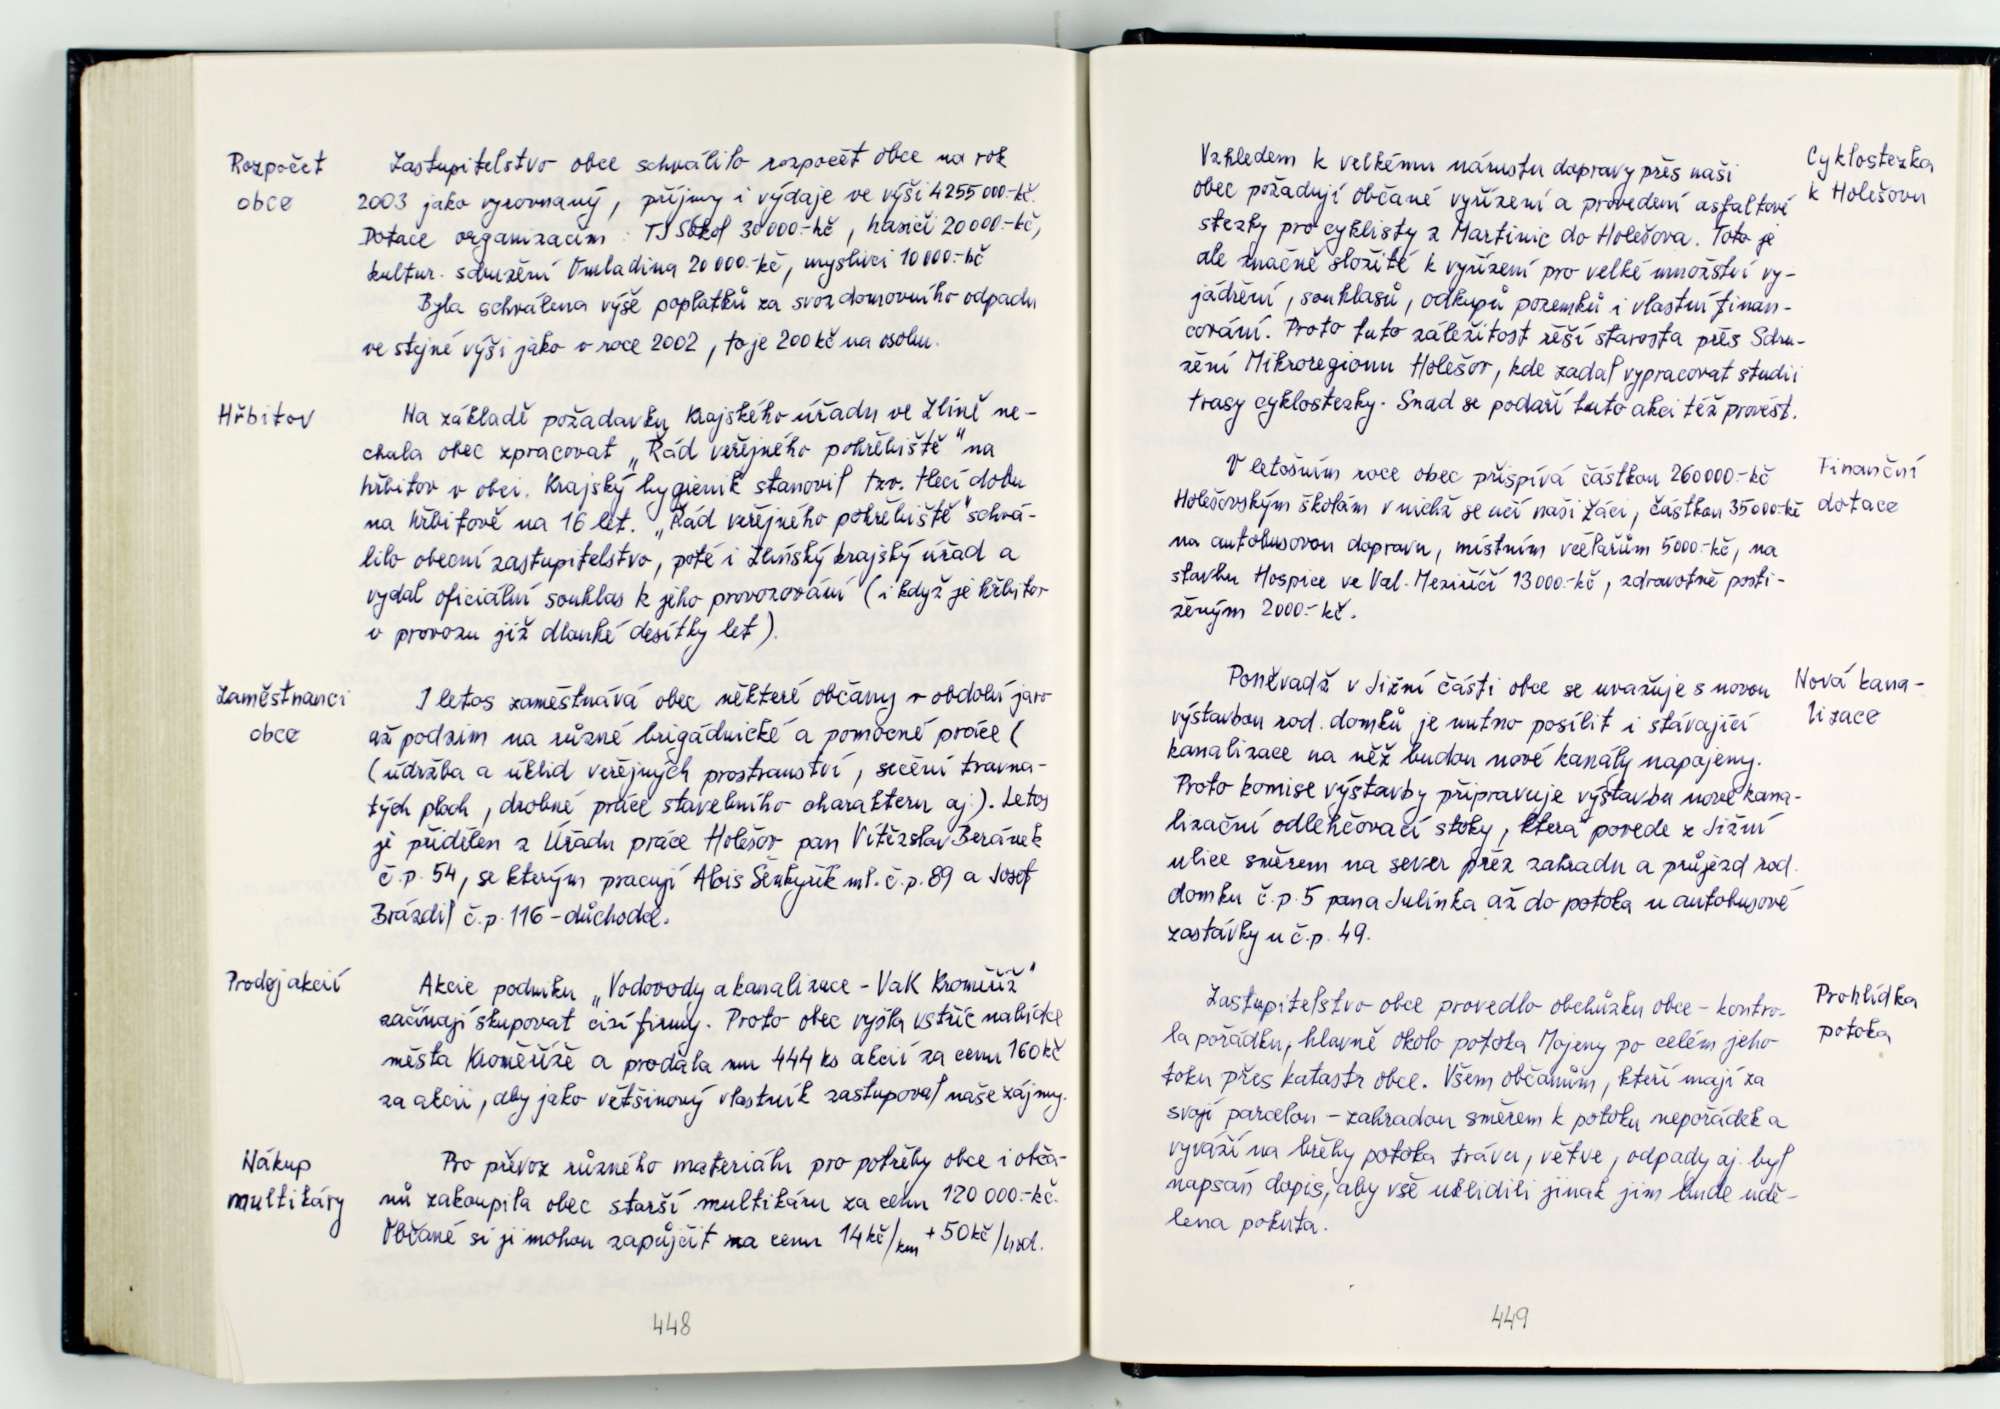 Rozpočet
obce
Zastupitelstvo obce schválilo rozpočet obce na rok
2003 jako vyrovnaný, příjmy i výdaje ve výši 4255000.-kč.
Dotace organizacím: TJ Sokol 30000.-kč, hasiči 20000.-kč,
kultur. sdružení Omladina 20000.-kč, myslivci 10000.-kč
Byla schválena výše poplatků za svoz domovního odpadu
ve stejné výši jako v roce 2002, to je 200kč na osobu.
Hřbitov
Na základě požadavku Krajského úřadu ve Zlíně ne-
chala obec zpracovat „Řád veřejného pohřebiště" na
hřbitov v obci. Krajský hygienik stanovil tzv. tlecí dobu
na hřbitově na 16 let. „Řád veřejného pohřebiště" schvá-
lilo obecní zastupitelstvo, poté i Zlínský krajský úřad a
vydal oficiální souhlas k jeho provozování (i když je hřbitov
v provozu již dlouhé desítky let).
Zaměstnanci
obce
I letos zaměstnává obec některé občany v období jaro
až podzim na různé brigádnické a pomocné práce (
(údržba a úklid veřejných prostranství, sečení travna-
tých ploch, drobné práce stavebního charakteru aj.). Letos
je přidělen z Úřadu práce Holešov pan Vítězslav Beránek
č.p. 54, se kterým pracují Alois Šenkyřík ml. č.p. 89 a Josef
Brázdil č.p. 116 - důchodci.
Prodej akcií
Akcie podniku „Vodovody a kanalizace - VaK Kroměříž"
začínají skupovat cizí firmy. Proto obec vyšla vstříc nabídce
města Kroměříže a prodala mu 444 ks akcií za cenu 160kč
za akcii, aby jako většinový vlastník zastupoval naše zájmy.
Nákup
multikáry
Pro převoz různého materiálu pro potřeby obce i obča-
nů zakoupila obec starší multikáru za cenu 120 000.-kč.
Občané si ji mohou zapůjčit za cenu 14kč/km + 50kč/hod.
448
Cyklostezka
k Holešovu
Vzhledem k velkému nárustu dopravy přes naši
obec požadují občané vyřízení a provedení asfaltové
stezky pro cyklisty z Martinic do Holešova. Toto je
ale značně složité k vyřízení pro velké množství vy-
jádření, souhlasů, odkupů pozemků i vlastní finan-
cování. Proto tuto záležitost řeší starosta přes Sdru-
žení Mikroregionu Holešov, kde zadal vypracovat studii
trasy cyklostezky. Snad se podaří tuto akci též provést.
Finanční
dotace
V letošním roce obec přispívá částkou 260000.-kč
Holešovským školám v nichž se učí naši žáci, částkou 35000.-kč
na autobusovou dopravu, místním včelařům 5000.-kč, na
stavbu Hospice ve Val. Meziříčí 13000.-kč, zdravotně posti-
ženým 2000.-kč.
Nová kana-
lizace
Poněvadž v Jižní části obce se uvažuje s novou
výstavbou rod. domků je nutno posílit i stávající
kanalizace na něž budou nové kanály napojeny.
Proto komise výstavby připravuje výstavbu nové kana-
lizační odlehčovací stoky, která povede z Jižní
ulice směrem na sever přez zahradu a průjezd rod.
domku č.p. 5 pana Julínka až do potoka u autobusové
zastávky u č.p. 49.
Prohlídka
potoka
Zastupitelstvo obce provedlo obchůzku obce - kontro-
la pořádku, hlavně okolo potoka Mojeny po celém jeho
toku přes katastr obce. Všem občanům, kteří mají za
svojí parcelou - zahradou směrem k potoku nepořádek a
vyváží na břehy potoka trávu, větve, odpady aj. byl
napsán dopis, aby vše uklidili jinak jim bude udě-
lena pokuta.
449